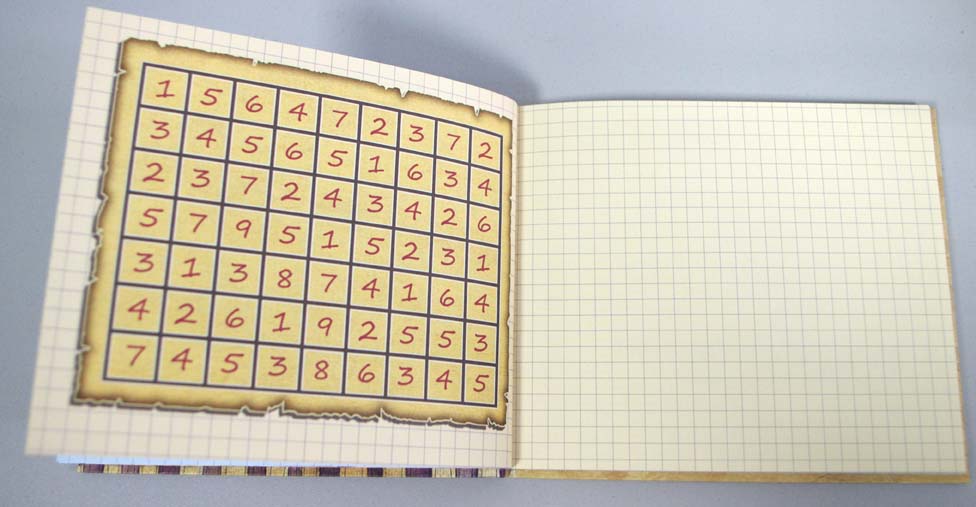 1 5 6 4 7 2 3 7 2
3 4 5 6 5 1 6 3 4
2 3 7 2 4 3 4 2 6
5 7 9 5 1 5 2 3 1
3 1 3 8 7 4 1 6 4
4 2 6 1 9 2 5 5 3
7 4 5 3 8 6 3 4 5